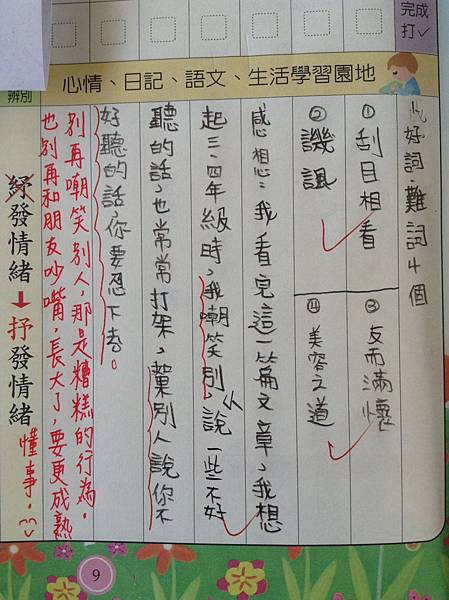 完成
打✓
心情、日記、語文、生活學習園地
好詞、難詞4個
①刮目相看
③友而滿懷
②譏諷
④美容之道
感想：我看完這一篇文章，我想
起三、四年級時，我嘲笑別人，說一些不好
聽的話，也常常打架，別人說你不
好聽的話，你要忍下去。
別再嘲笑別人，那是糟糕的行為。
也別再和朋友吵嘴，長大了，要更成熟
懂事。
辨別
紓發情緒➡抒發情緒
9